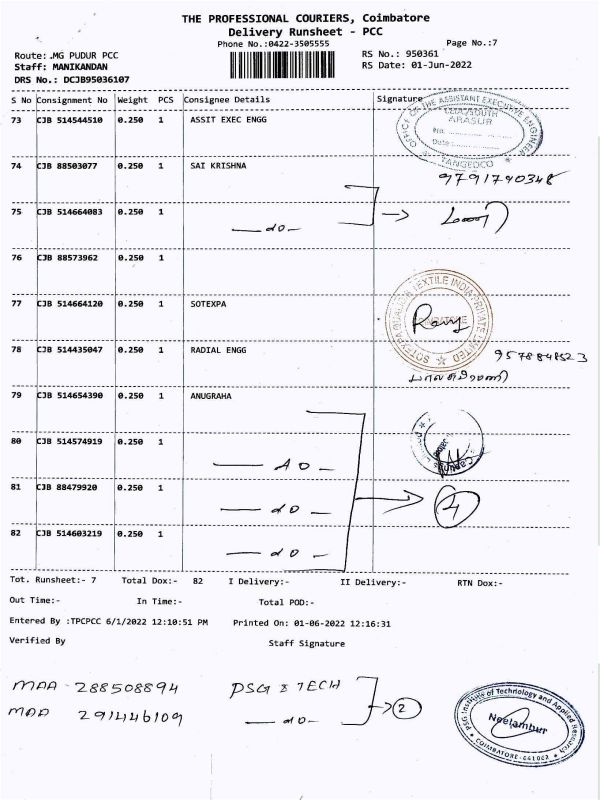 THE PROFESSIONAL COURIERS, Coimbatore
Delivery Runsheet - PCC
Phone No.:0422-3505555 Page No.:7
Route:.MG PUDUR PCC RS No.: 950361
Staff: MANIKANDAN RS Date: 01-Jun-2022
DRS No.: DCJB95036107
S No Consignment No Weight PCS Consignee Details Signature
73 CJB 514544510 0.250 1 ASSIT EXEC ENGG
OFFICE OF THE ASSISTANT EXECUTIVE ENGINEER
ARASUR
No.
Date:
TANGEDCO
74 CJB 88503077 0.250 1 SAI KRISHNA
9791790348
75 CJB 514664083 0.250 1
do
76 CJB 88573962 0.250 1
77 CJB 514664120 0.250 1 SOTEXPA
SOTEXPA QUALIDIS TEXTILE INDIA PRIVATE LIMITED
COIMBATORE
78 CJB 514435047 0.250 1 RADIAL ENGG
9578848523
79 CJB 514654390 0.250 1 ANUGRAHA
80 CJB 514574919 0.250 1
do
81 CJB 88479920 0.250 1
do 4
82 CJB 514603219 0.250 1
do
Tot. Runsheet:- 7 Total Dox:- 82 I Delivery:- II Delivery:- RTN Dox:-
Out Time:- In Time:- Total POD:-
Entered By :TPCPCC 6/1/2022 12:10:51 PM Printed On: 01-06-2022 12:16:31
Verified By Staff Signature
MAA - 288508894 PSG I TECH
MAA 291446109 do 2
PSG Institute of Technology and Applied Research
Neelambur
COIMBATORE-641062